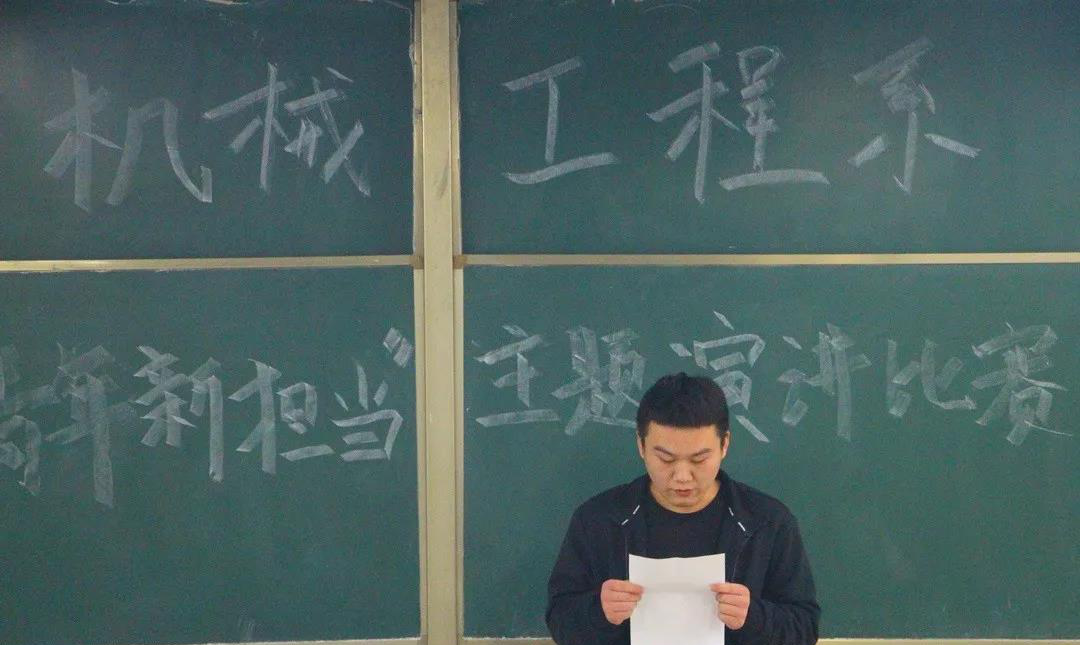 机械工程系
年新担当”主题演讲比赛